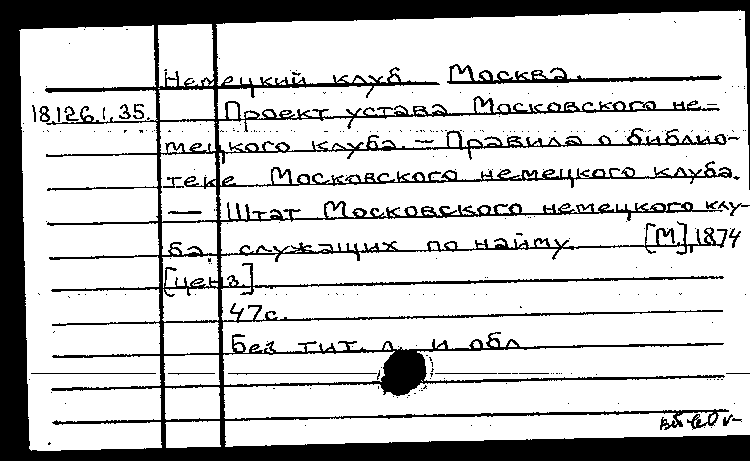 Немецкий клуб. Москва.
18.126.1.35. Проект устава Московского не-
мецкого клуба. – Правила о библио-
теке Московского немецкого клуба.
— Штат Московского немецкого клу-
ба, служащих по найму. [М], 1874
[ценз.]
47с.
Без тит. л. и обл